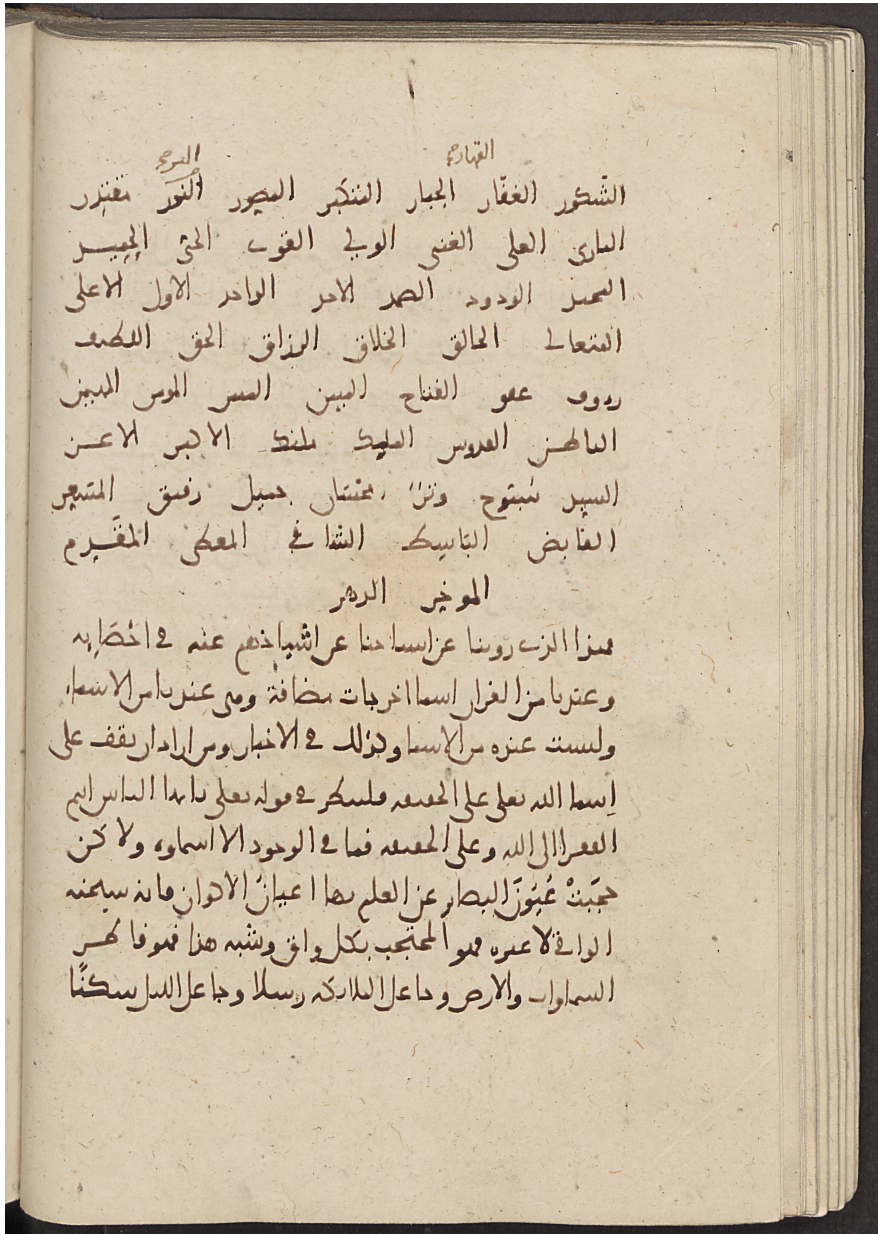 القهار صح البر صح
الشّكور الغفّار الجبار المتكبّر المصور النور مقتدر
البارى العلى الغنى الولي القوى الحىّ المجيد
الحميد الودود الصمد الاحد الواحد الاول الاعلى
المتعالى الخالق الخلاق الرزاق الحق اللطيف
رءوف عفو الفتاح المبين المومن المهيمن
الباطن القدوس المليك مليك الاكبر الاعز
السيد سُبّوح وترٌ محسان جميل رفيق المسعر
القابض البَاسط الشافي المعطى المقَدم
الموخر الدهر
فهذا الذى روينا عن اشياخنا عن اشياخهم عنه في احْصَايه
وعندنا من القران اسما اخر جات مضافة وهى عندنا من الاسماء
وليست عنده من الاسما وكذلك في الاخبار ومن اراد ان يقف على
اسما الله تعلى على الحقيقه فلينظر في قوله تعلى يايها الناس انتم
الفقرا الى الله وعلى الحقيقه فما في الوجود الا اسماوه ولاكن
حجَبَتْ عُيُونَ البصاير عن العلم بها اعيانُ الاكوان فانه سبحنه
الواقي لا غيره فهو المحتجب بكل واق وشبه هذا فهو فاطر
السماوات والارض وجاعل الملايكه رسلا وجاعل الليل سكنًا